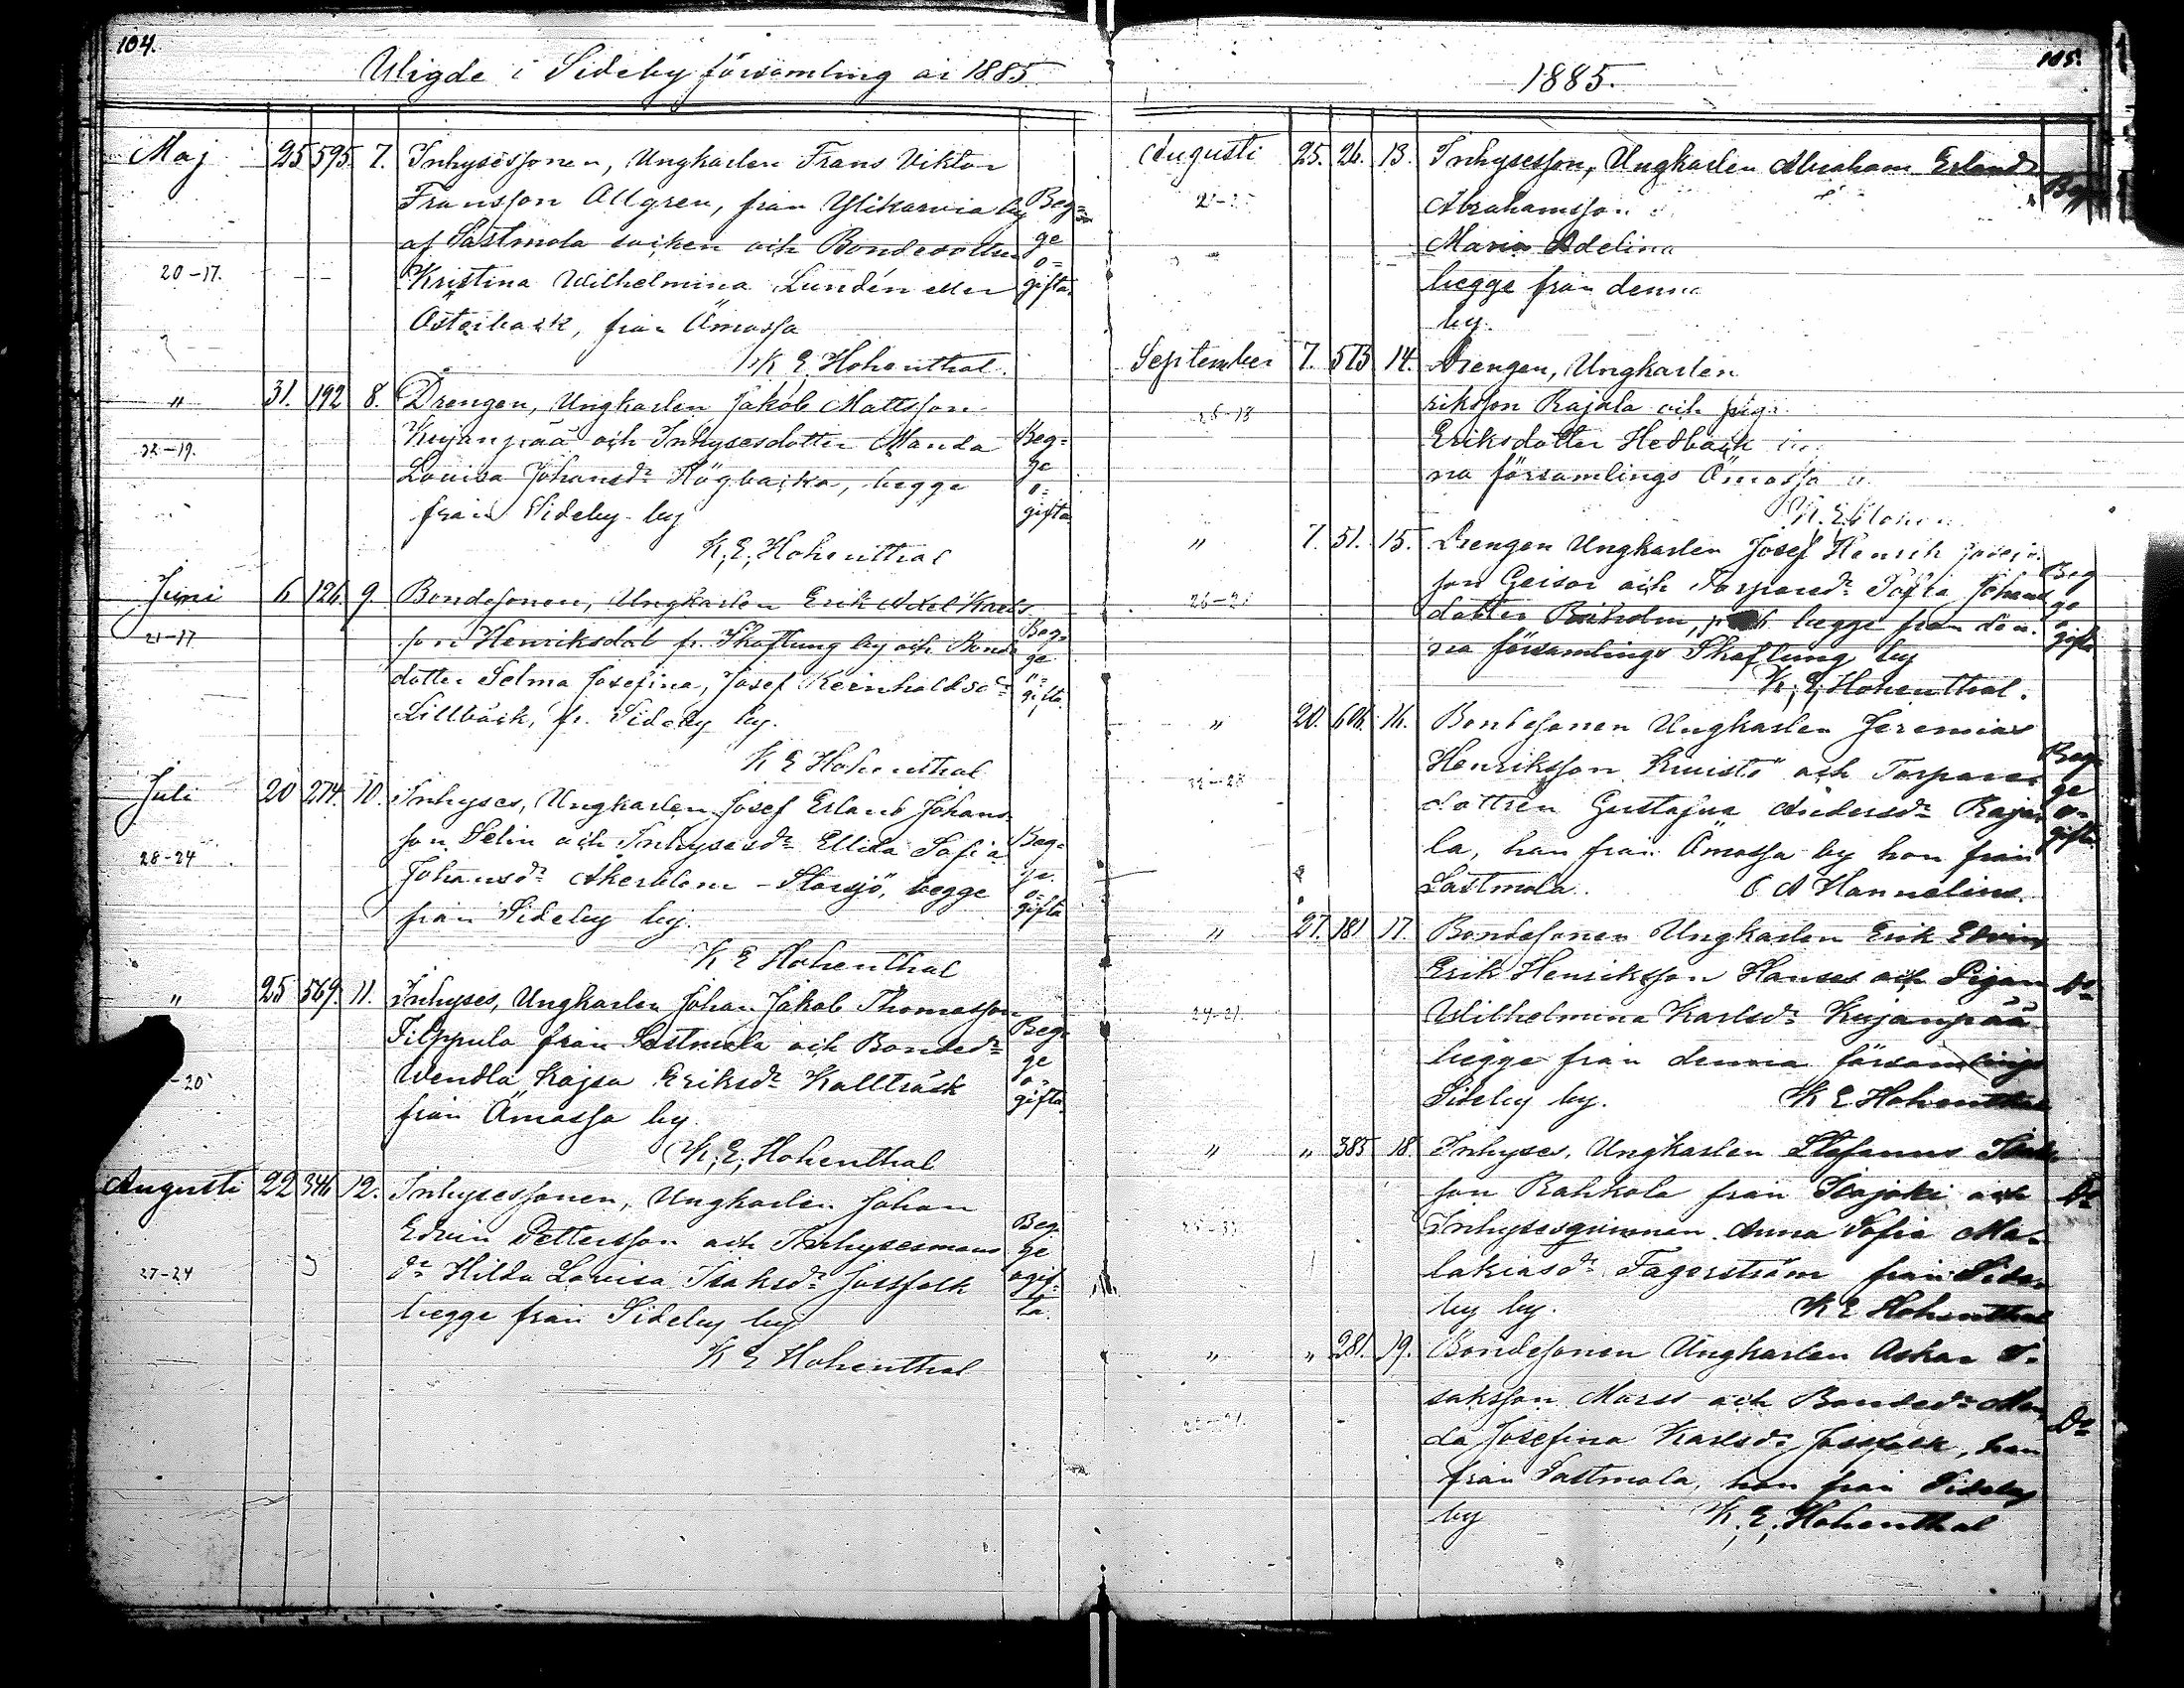 104.
Wigde i Sideby församling år 1885
Maj 25 595. 7. Inhysessonen, Ungkarlen Frans Viktor
Fransson Allgren, från Ylikarvia by Beg=
af Sastmola socken och Bondedottren ge
20-17. Kristina Wilhelmina Lundén eller o=gifta.
Österback, från Ömossa
K E Hohenthal.
" 31. 192 8. Drengen, Ungkarlen Jakob Mattsson
Kujanpää och Inhysesdotter Manda Beg=
22-19. Lovisa Johansdr Högbacka, begge ge o=
från Sideby by gifta
K. E. Hohenthal
Juni 6 126. 9. Bondesonen, Ungkarlen Erik Axel Karls
21-17 son Henriksdal fr. Skaftung by och Bonde Beg=ge
dotter Selma Josefina, Josef Reinholdsdr o=gifta.
Lillbäck, fr. Sideby by.
K E Hohenthal
Juli 20 274. 10. Inhyses, Ungkarlen Josef Erland Johans
son Selin och Inhysesdr Ellida Sofia Beg=
28-24 Johansdr Åkerblom-Storsjö, begge ge. o=
från Sideby by. gifta
K E Hohenthal
" 25 569. 11. Inhyses, Ungkarlen Johan Jakob Thomasson
Filppula från Sastmola och Bondedr Beg=
-20 Wendla Kajsa Eriksdr Kallträsk ge o=
från Ömossa by. gifta.
K. E. Hohenthal
Augusti 22 346 12. Inhysessonen, Ungkarlen Johan
Edvin Pettersson och Inhysesmans Beg ge
27-24 dr Hilda Lovisa Isaksdr Jossfolk ogif=
begge från Sideby by ta.
K E Hohenthal
105.
1885.
Augusti 25. 26. 13. Inhysesson, Ungkarlen Abraham Erland
Abrahamsson
Maria Adelina
begge från denna
by.
September 7. 573 14. Drengen, Ungkarlen
riksson Rajala och pig
Eriksdotter Hedback
na församlings Ömossa
K. E. Hohen
" 7. 51. 15. Drengen Ungkarlen Josef Henrik Josefs
son Geisor och Torparedr Sofia Johans Beg
dotter begge från den= ge o
na församlings Skaftung by gifta
K. E. Hohenthal.
" 20. 606. 16. Bondesonen Ungkarlen Jeremias
Henriksson Kuisto och Torpare= Beg=
22-28 dottren Gustafva Andersdr Raja= ge o=
la, han från Ömossa by hon från gifta
Sastmola. C A Hannelius.
" 27. 181 17. Bondesonen Ungkarlen Erik Edvin
Erik Henriksson Hanses och Pigan Do
24-21. Wilhelmina Karlsdr Kujanpää
begge från denna församlings
Sideby by. K E Hohenthal
" " 385 18. Inhyses, Ungkarlen Stefanus Isaks
son Rahkola från Storjoki och Do
Inhysesqvinnan Anna Sofia Ma=
lakiasdr Fagerström från Side=
by by. K E Hohenthal
" " 281. 19. Bondesonen Ungkarlen Oskar I=
saksson Marss och Bondedr Man
da Josefina Karlsdr Jossfolk, han Do
från Sastmola, hon från Sideby
by K. E. Hohenthal